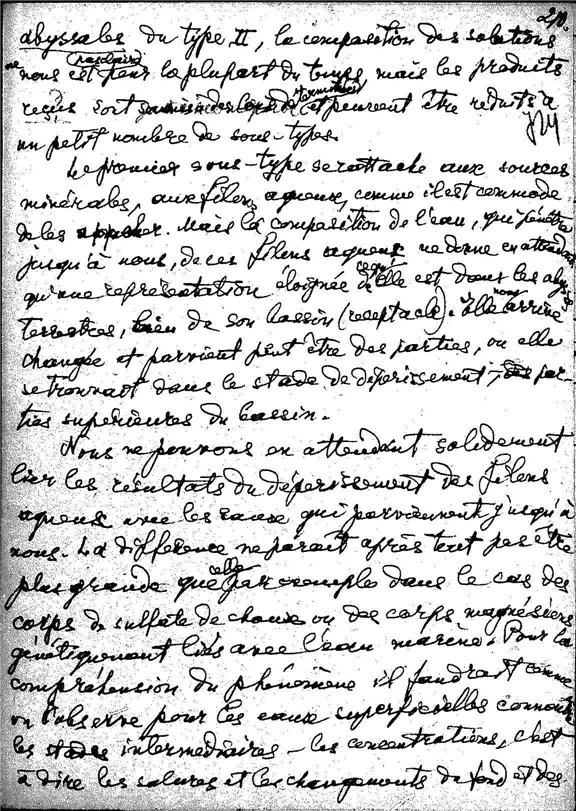 210.
abyssales du type II, la composition des solutions
ne nous est pour la plupart du temps, mais les produits
reçus sont et peuvent être reduits à
un petit nombre de sous-types.
Le premier sous-type se rattache aux sources
minérales, aux filons aqueux, comme il est commode
de les appeler. Mais la composition de l'eau, qui pénètre
jusqu'à nous, de ces filons aqueux ne donne en attendant
qu'une représentation éloignée de ce qu'elle est dans les abysses
terrestres, bien de son bassin (receptacle). Elle nous arrive
changée et parvient peut être des parties, ou elle
se trouvait dans le stade de déperissement, des par-
ties supérieures du bassin.
Nous ne pouvons en attendant solidement
lier les résultats du déperissement des filons
aqueux avec les eaux qui parviennent jusqu'à
nous. La difference ne parait après tout pas être
plus grande que celle par exemple dans le cas des
corps de sulfate de chaux ou des corps magnésiens
génétiquement liés avec l'eau marine. Pour la
compréhension du phénomène il faudrait comme
on l'observe pour les eaux superficielles connaitre
les stades intermediaires – les concentrations, c'est
à dire les salures et les changements du fond et des